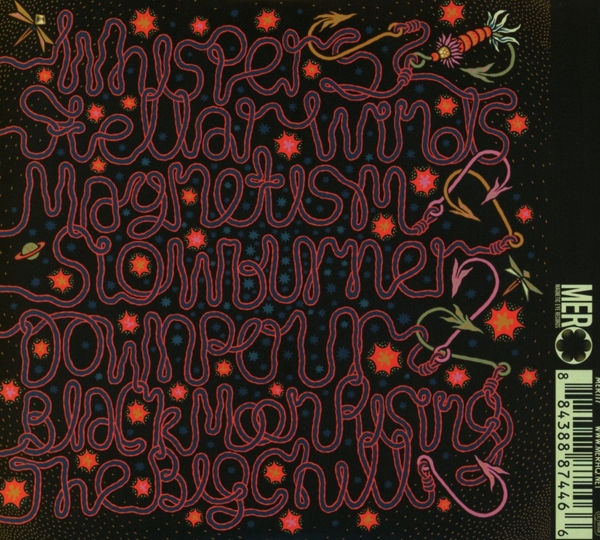 Whispers
Stellar Winds
Magnetism
Slowburner
Downpour
Black Moon Rising
The Big Chill
MER
8 84388 87446 6